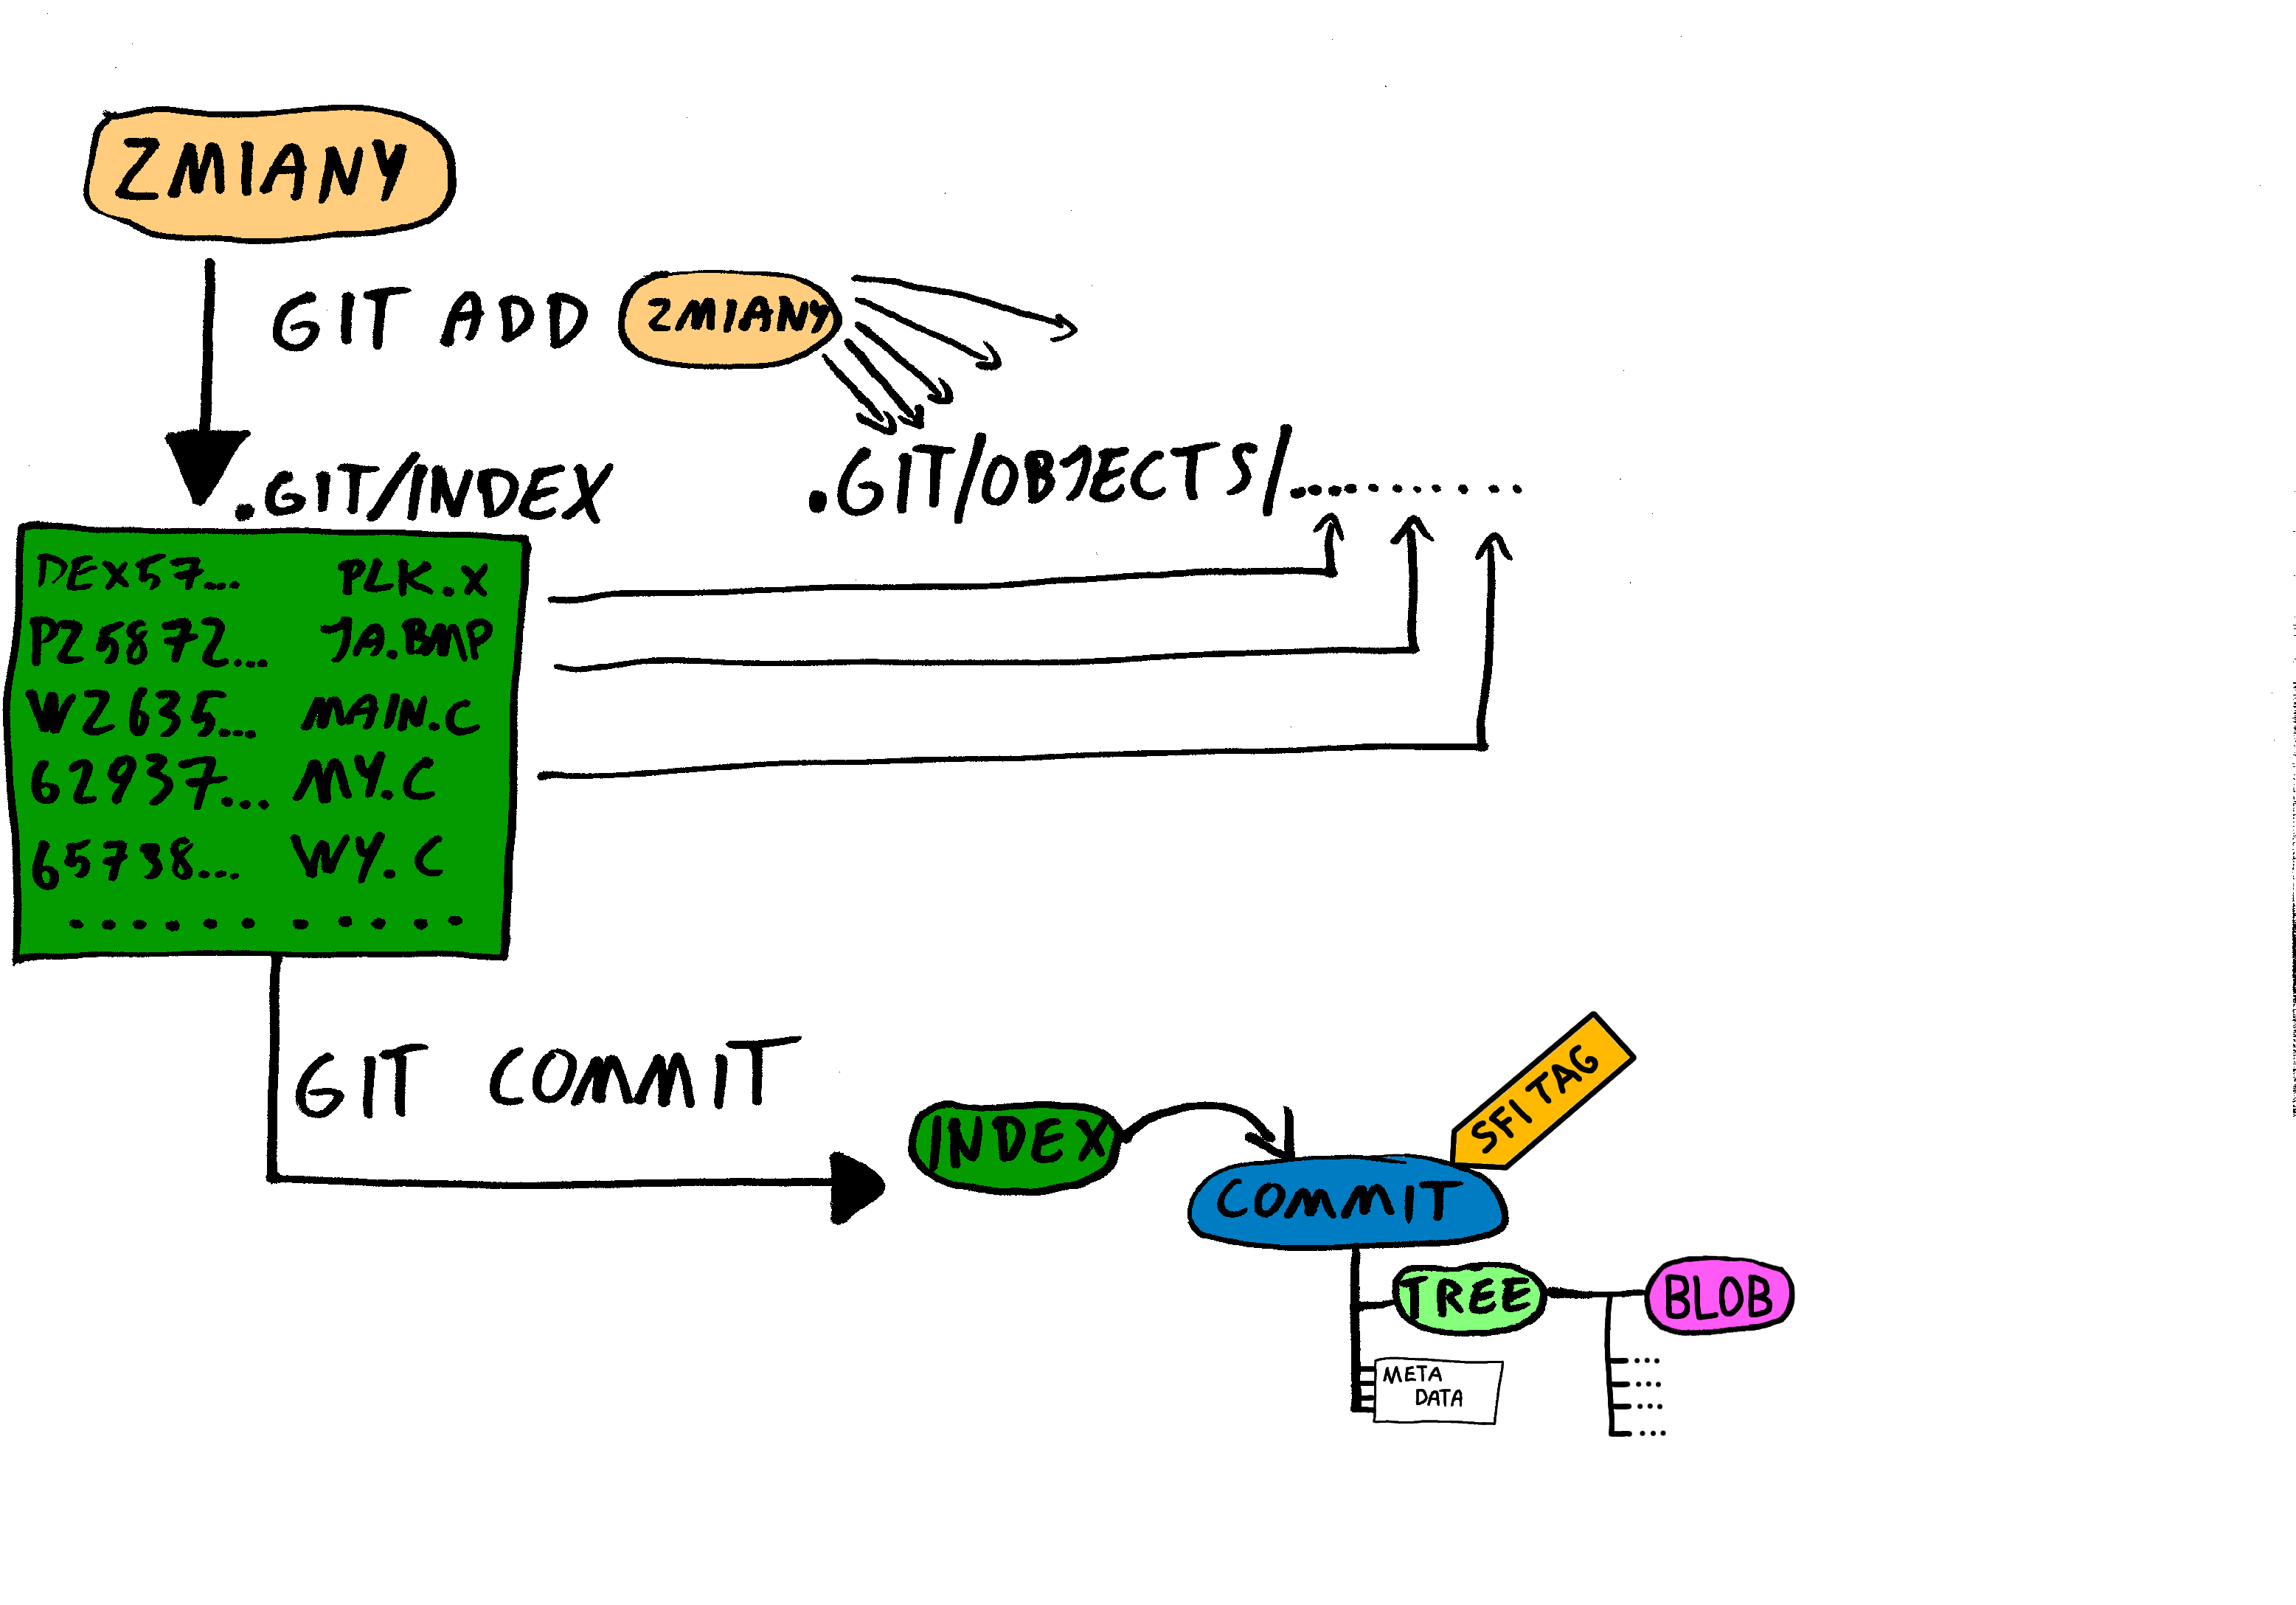 ZMIANY
GIT ADD ZMIANY
.GIT/INDEX
.GIT/OBJECTS/............
DEX57... PLK.X
PZ5872... JA.BMP
WZ635... MAIN.C
62937... MY.C
65738... WY.C
...........
GIT COMMIT
SFI TAG
INDEX
COMMIT
TREE
BLOB
META
DATA
...
...
...
...